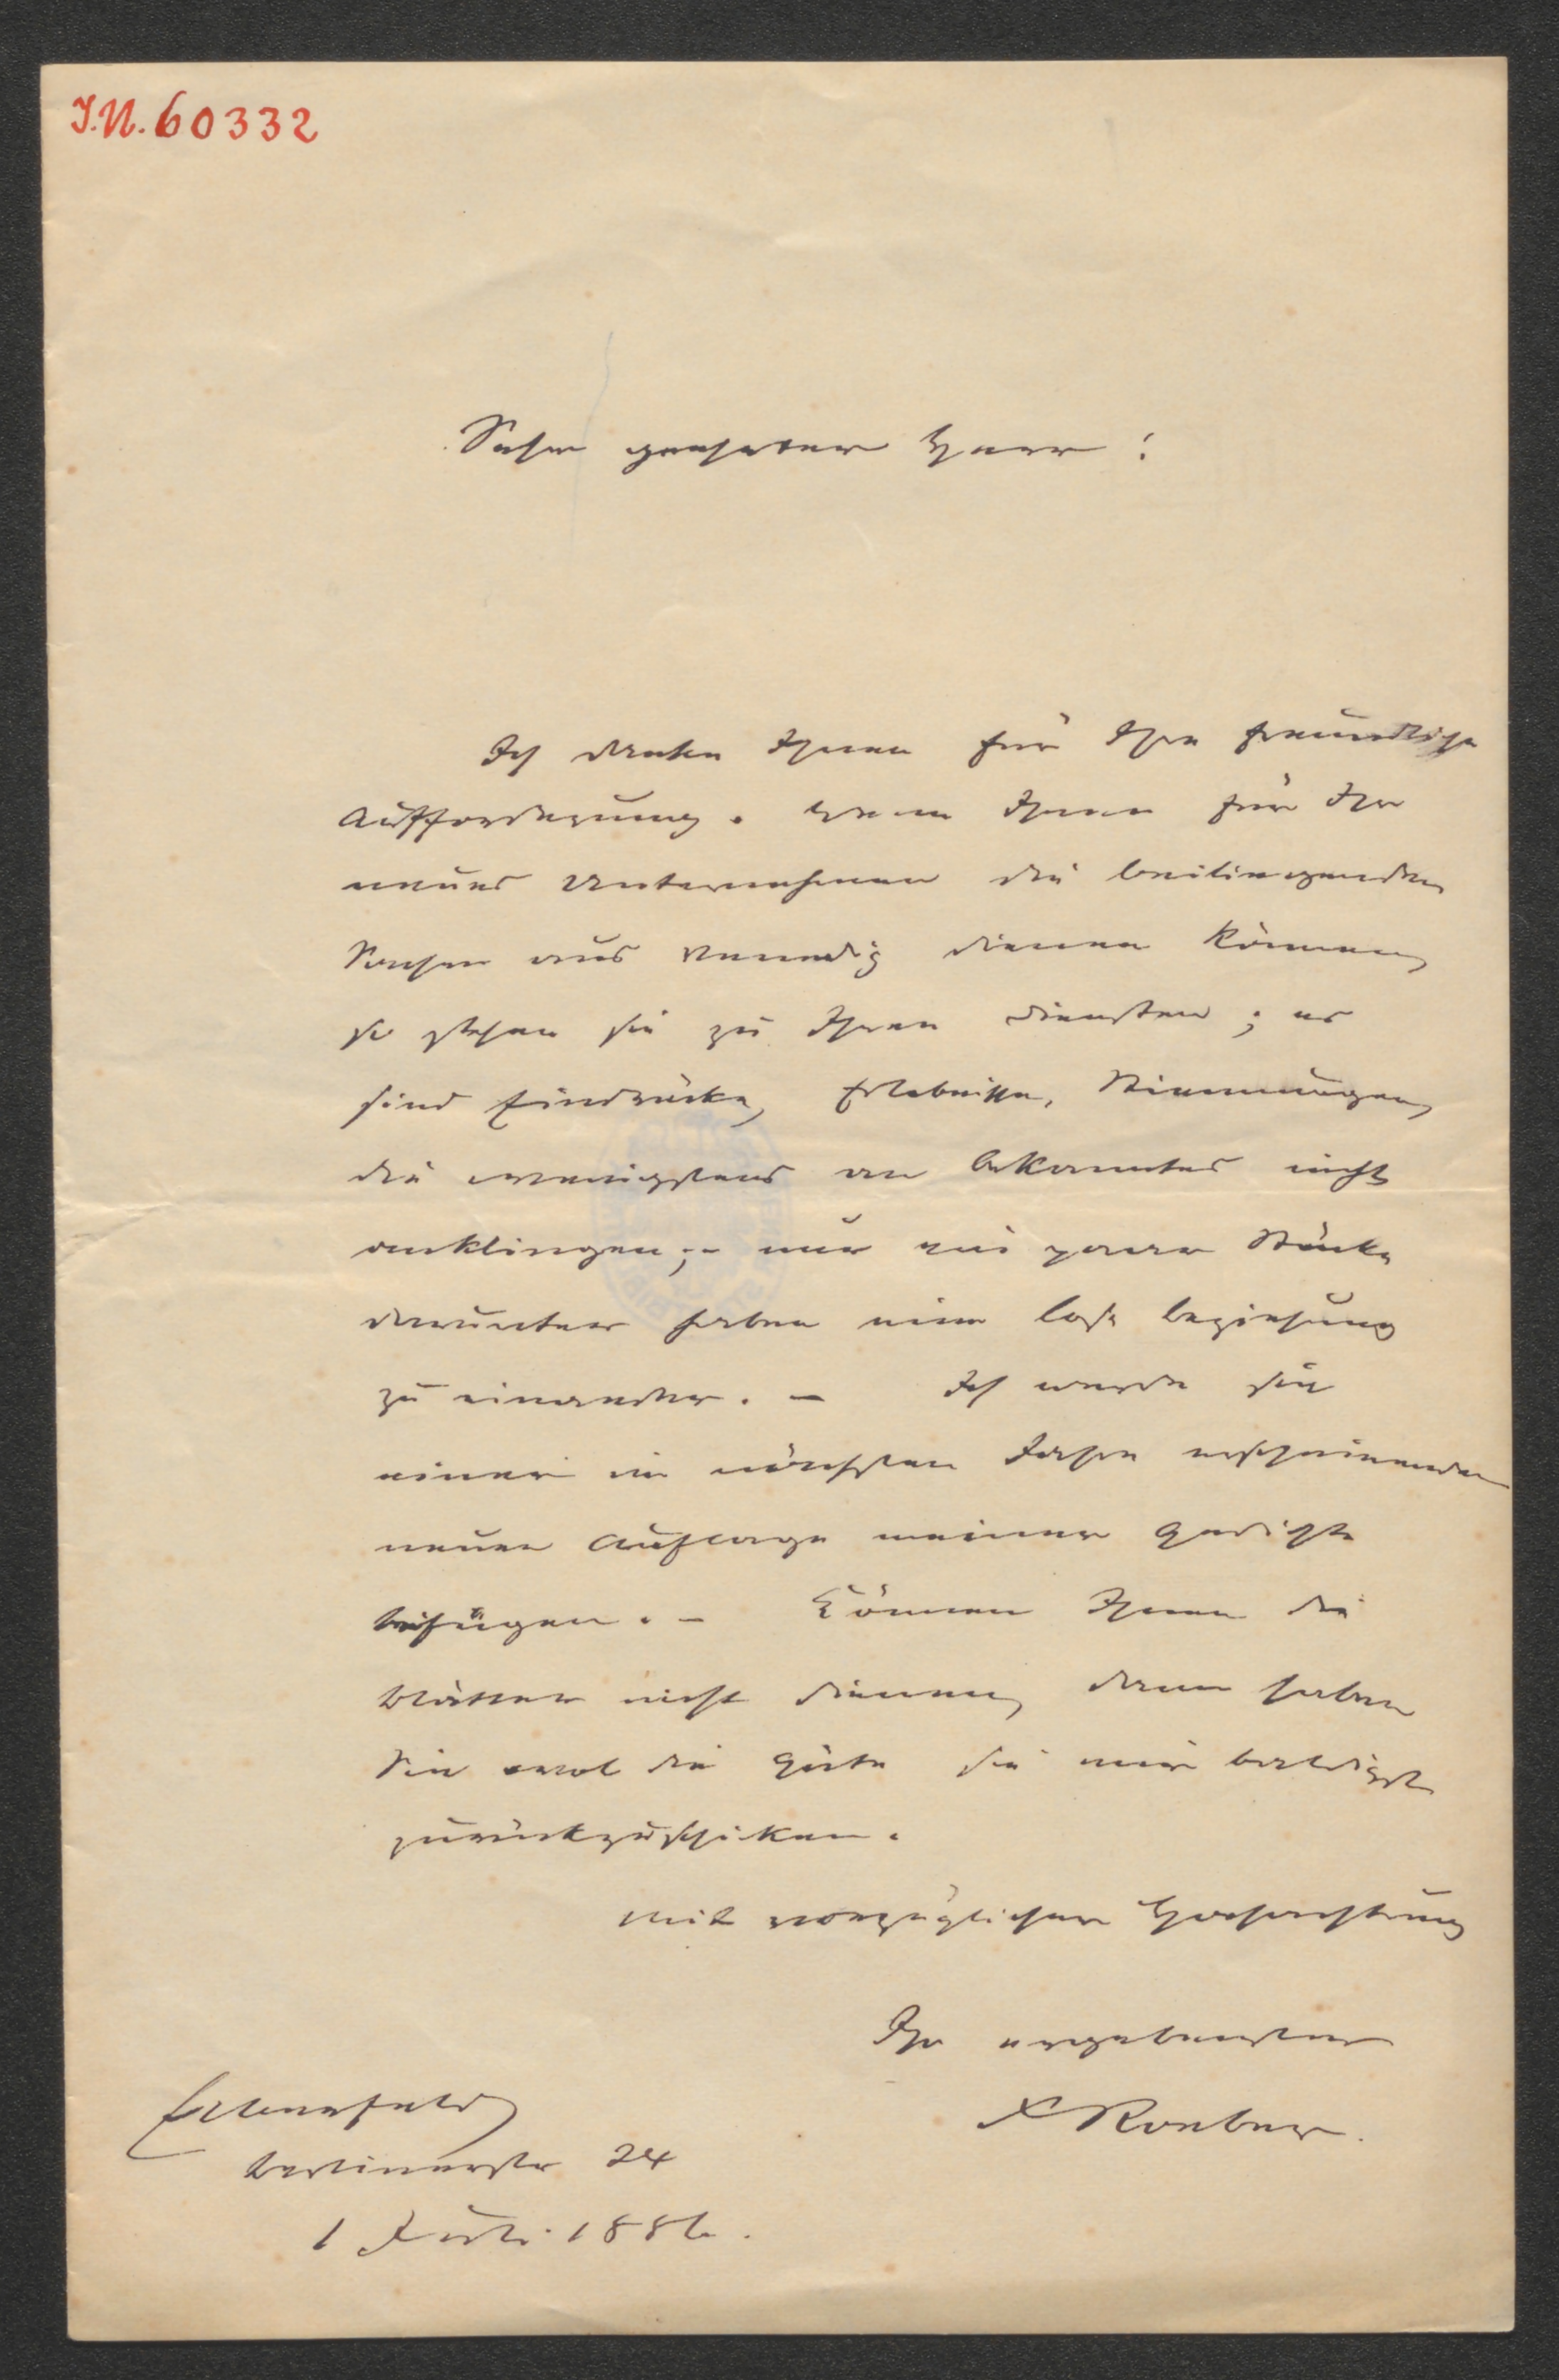 I.N. 60332
Sehr geehrter Herr!
Ich danke Ihnen für Ihre freundliche
Aufforderung. Wenn Ihnen für Ihr
neues Unternehmen die beiliegenden
Sachen aus Venedig dienen können,
so stehen sie zu Ihren Diensten; es
sind Eindrücke, Erlebnisse, Stimmungen,
die wenigstens an bekanntes nicht
anklingen;- nur ein paar Stücke
darunter haben eine lose Beziehung
zu einander. – Ich werde sie
einer im nächsten Jahre erscheinenden
neuen Auflage meiner Gedichte
beifügen. – Können Ihnen die
Blätter nicht dienen, dann haben
Sie wol die Güte sie mir baldigst
zurückzuschiken.
Mit vorzüglicher Hochachtung
Ihr ergebenster
F Roeber.
Elberfeld
Berlinerstr 24
1 Juli 1886.